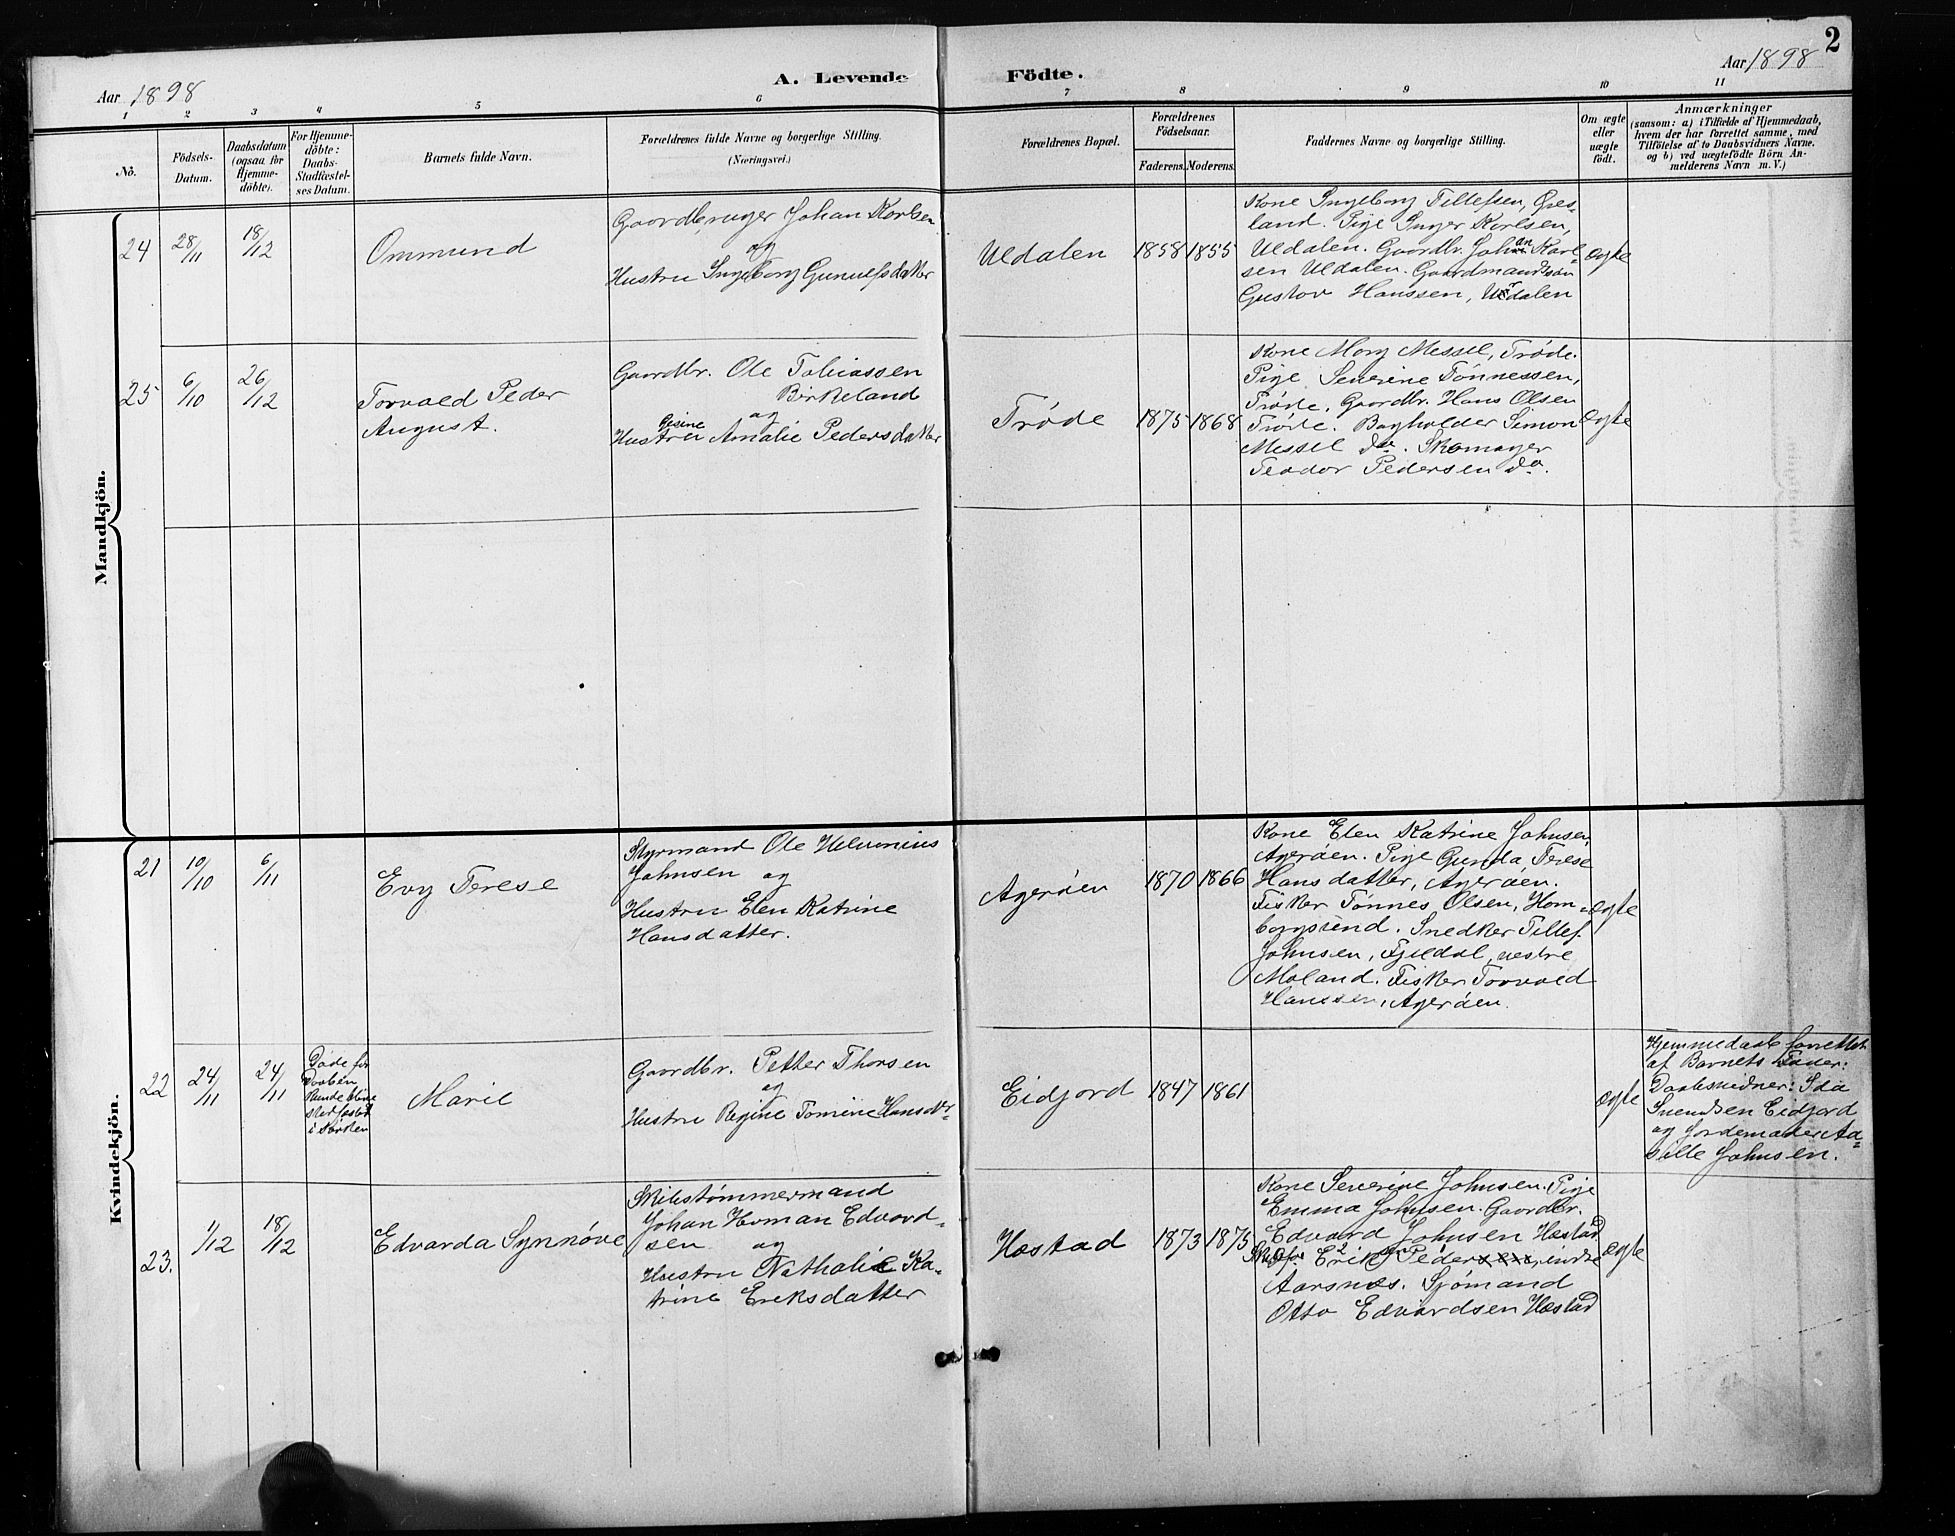 2
Aar 1898
A. Levende Födte.
Aar 1898
1 2 3 4 5 6 7 8 9 10 11
No.
Födsels-
Datum.
Daabsdatum
(ogsaa for
Hjemme-
döbte).
For Hjemme-
döbte:
Daabs-
Stadfæstel-
ses Datum.
Barnets fulde Navn.
Forældrenes fulde Navne og borgerlige Stilling.
(Næringsvei.)
Forældrenes Bopæl.
Forældrenes
Födselsaar.
Faderens. Moderens.
Faddernes Navne og borgerlige Stilling.
Om ægte
eller
uægte
födt.
Anmærkninger
(saasom: a) i Tilfælde af Hjemmedaab,
hvem der har forrettet samme, med
Tilföielse af to Daabsvidners Navne.
og b) ved uægtefödte Börn An-
melderens Navn m. V.)
Mandkjön.
24
28/11
18/12
Ommund
Gaardbruger Johan Karlsen
og
Hustru Ingeborg Gunulfsdatter
Uldalen
1858 1855
Kone Ingeborg Tillefsen,
land. Pige Inger Karlsen,
Uldalen. Gaardbr. Johan Karl-
sen Uldalen. Gaardmandssøn
Gustav Hanssen, Uldalen
Ægte
25
6/10
26/12
Torvald Peder
August.
Gaardbr. Ole Tobiassen
Birkeland
og
Hustru Gisine Amalie Pedersdatter
Trøde
1875 1868
Kone Mary Messel, Trøde.
Pige Severine Tønnessen,
Trøde. Gaardbr. Hans Olsen
Trøde. Bagholder Simon
Messel Do. Skomager
Teodor Pedersen Do.
Ægte
Kvindekjön.
21
10/10
6/11
Evy Terese
Styrmand Ole Helvinius
Johnsen og
Hustru Elen Katrine
Hansdatter.
Agerøen
1870 1866
Kone Elen Katrine Johnsen,
Agerøen. Pige Gunda Terese
Hansdatter, Agerøen.
Fisker Tønnes Olsen, Hom-
borgsund. Snedker Tillef
Johnsen, Fjeldal, vestre
Moland. Fisker Torvald
Hanssen, Agerøen.
Ægte
22
24/11
24/11
Døde før
Daaben
kunde blive
stadfæstet
i Kirken
Marie
Gaardbr. Petter Thorsen
og
Hustru Regine Tomine Hansdtr-
Eidjord
1847 1861
Ægte
Hjemmedaab forrettet
af Barnets Fader.
Daabsvidner: Ida
Svendsen Eidjord
og Jordemoder
Johnsen.
23.
1/12
18/12
Edvarda Synnøve
Skibstømmermand
Johan Herman Edvard-
sen og
Hustru Nathalie Ka-
trine Eriksdatter
Hæstad
1873 1875
Kone Severine Johnsen. Pige
Emma Johnsen. Gaardbr.
Edvard Johnsen Hæstad
Erik Peder indre
Aarsnes. Sjømand
Otto Edvardsen Hæstad
Ægte